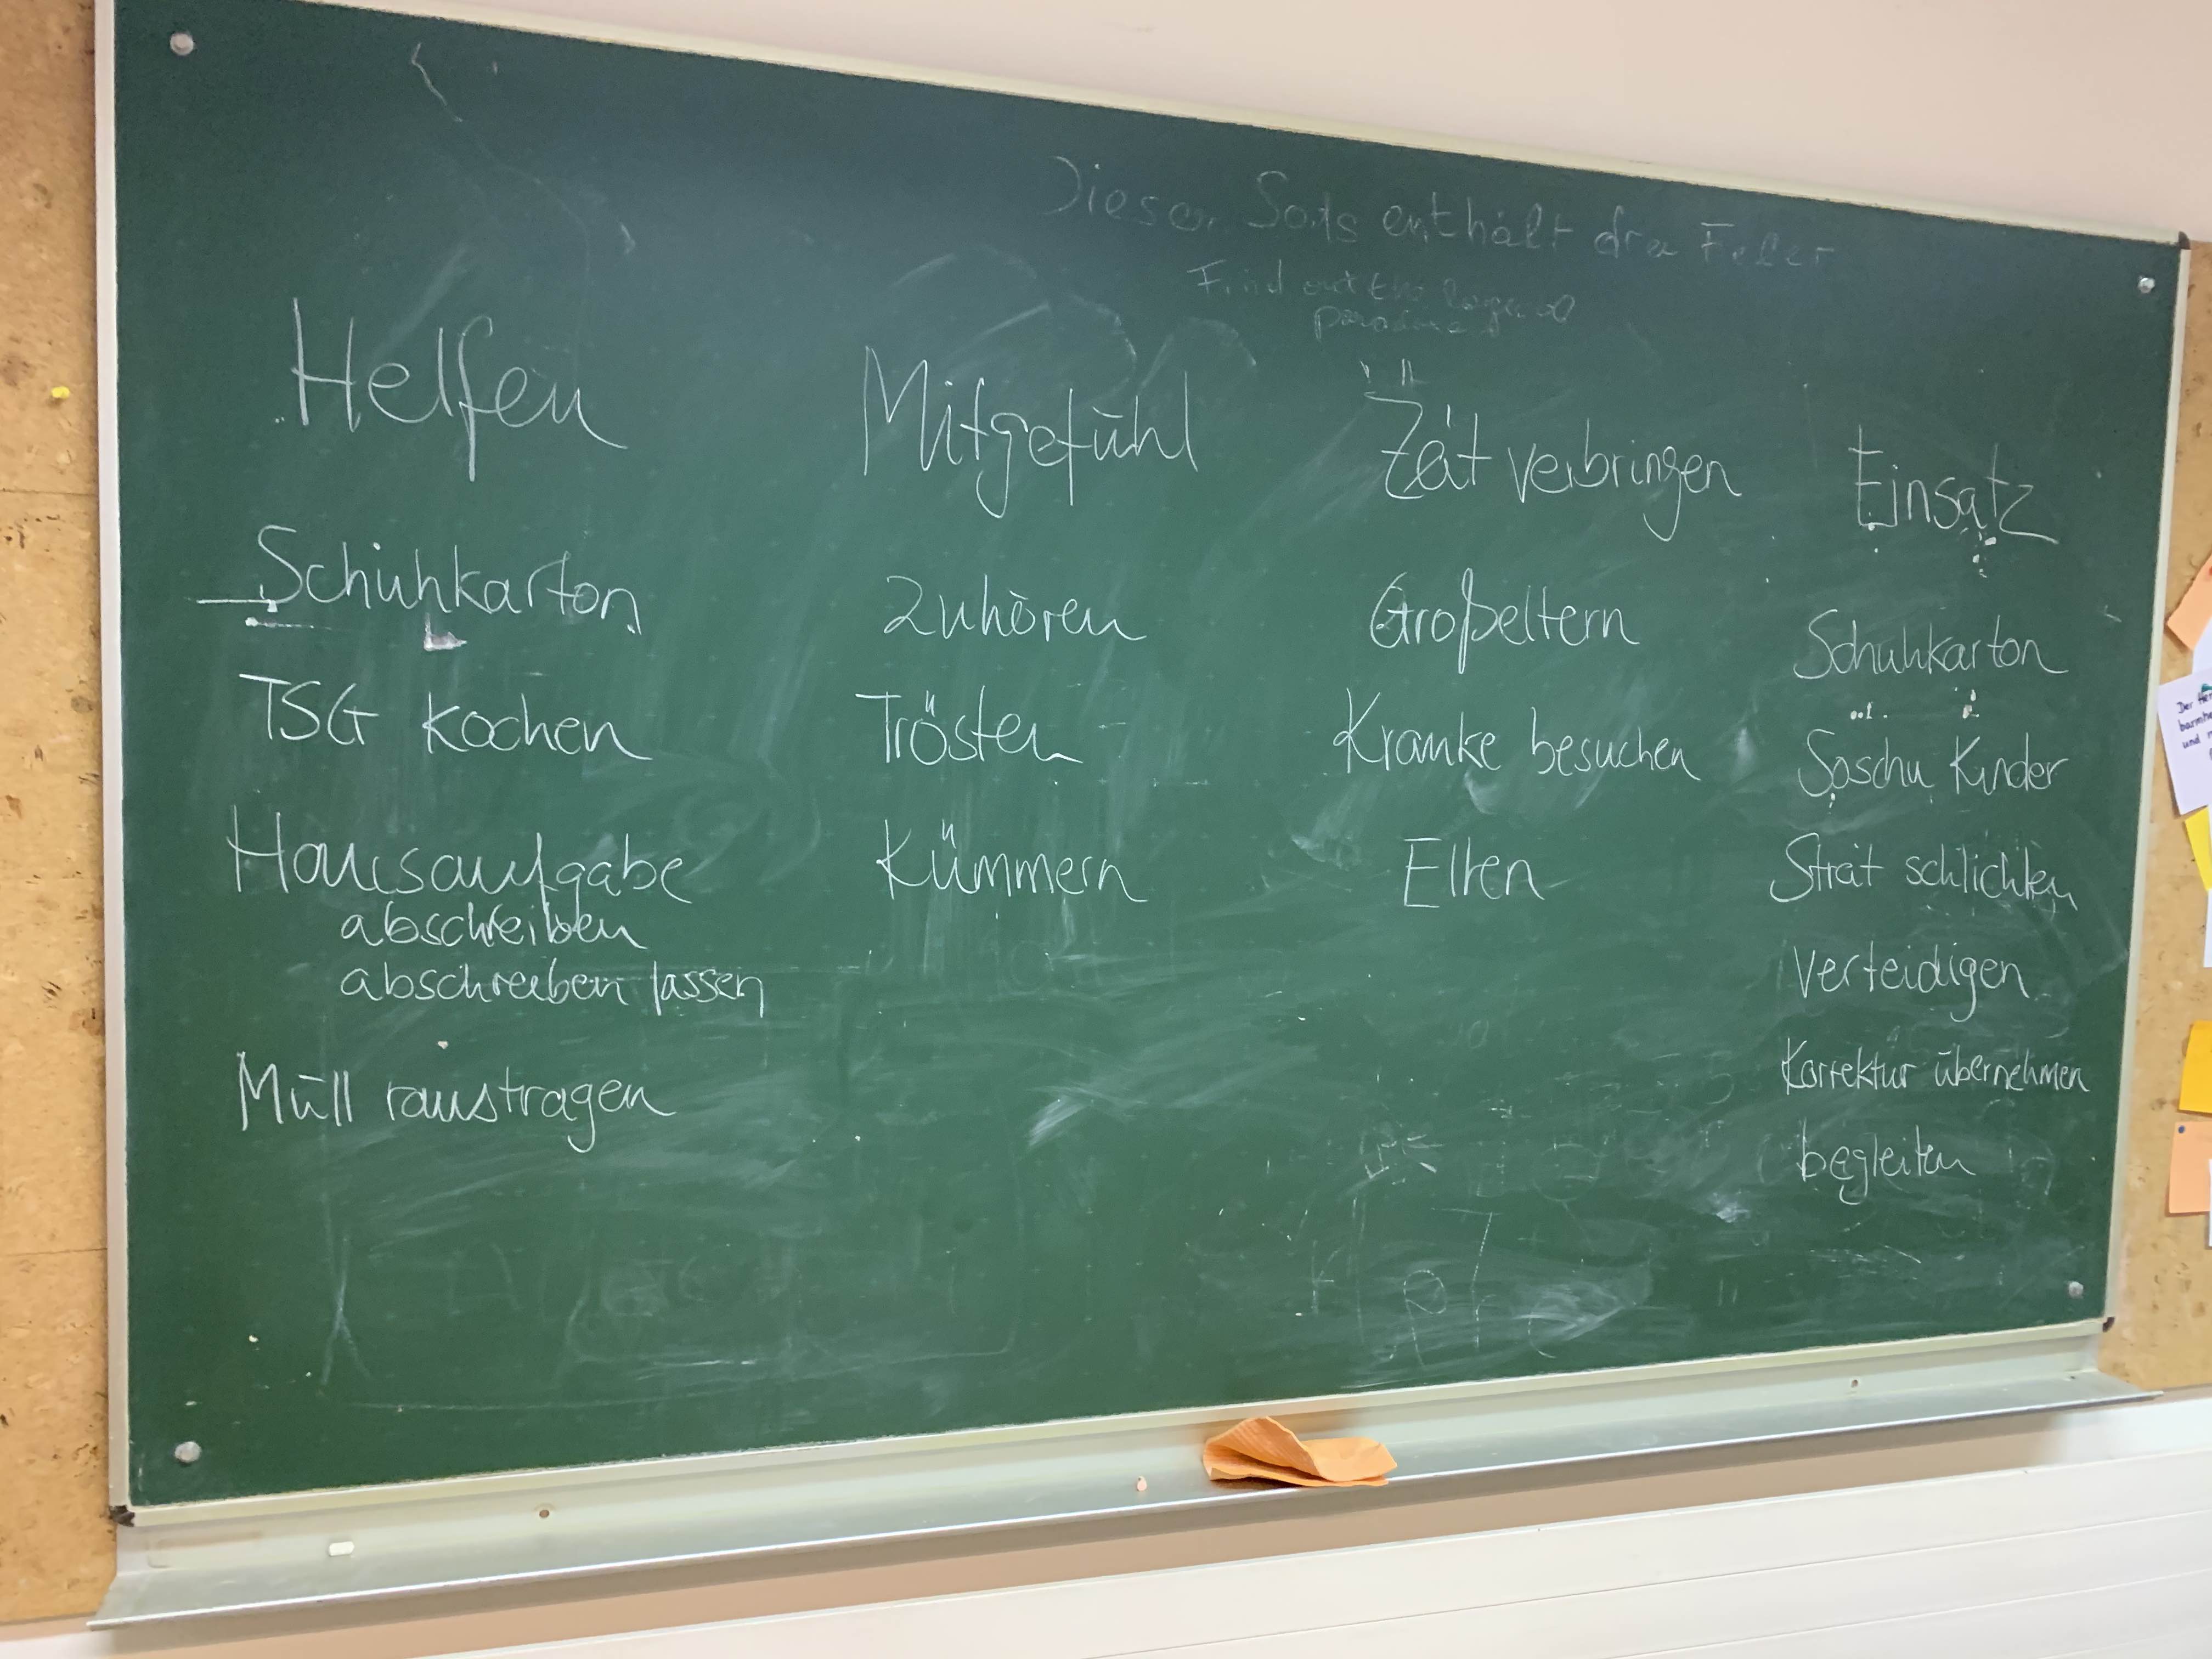 enthält drei Feler
Find out the
Helfen
Schuhkarton
TSG kochen
Hausaufgabe
abschreiben
abschreiben lassen
Müll raustragen
Mitgefühl
Zuhören
Trösten
Kümmern
Zeit verbringen
Großeltern
Kranke besuchen
Eltern
Einsatz
Schuhkarton
Soschu Kinder
Streit schlichten
Verteidigen
Korrektur übernehmen
begleiten